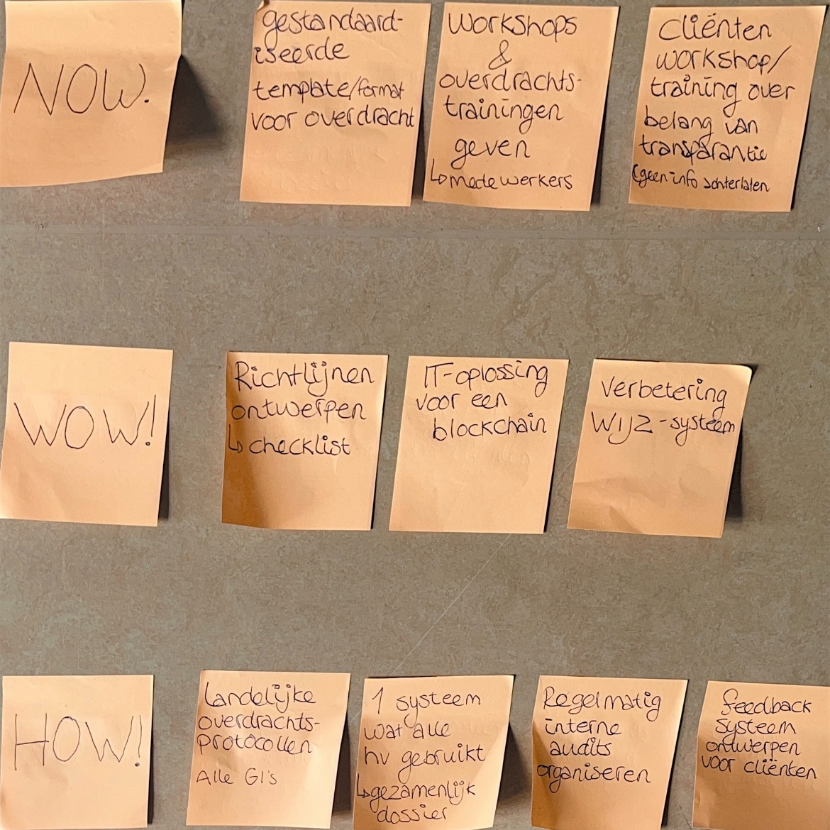 NOW.
gestandaard-
iseerde
template/format
voor overdracht
Workshops
&
overdrachts-
trainingen
geven
↳ medewerkers
Cliënten
workshop/
training over
belang van
transparantie
(geen info achterlaten
WOW!
Richtlijnen
ontwerpen
↳ checklist
IT-oplossing
voor een
blockchain
Verbetering
WIJZ-systeem
HOW!
Landelijke
overdrachts-
protocollen
Alle GI's
1 systeem
wat alle
hv gebruikt
↳ gezamenlijk
dossier
Regelmatig
interne
audits
organiseren
feedback
systeem
ontwerpen
voor cliënten